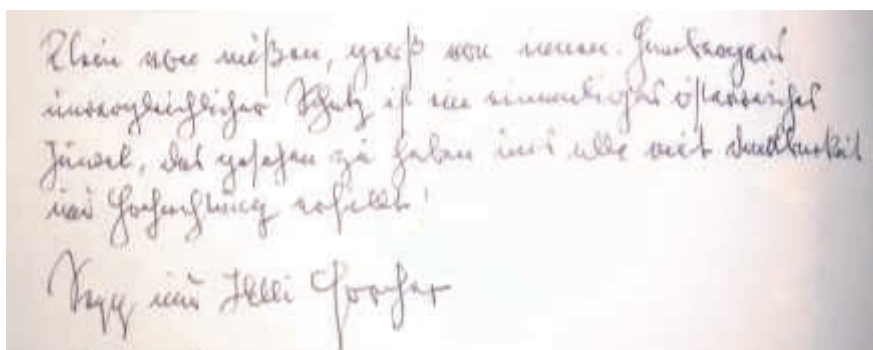 Klein von außen, groß von innen. Gumtransgens
unvergleichlicher Schatz ist ein einmaliges österreichisches
Juwel, das gesehen zu haben uns alle mit Dankbarkeit
und Hochachtung erfüllt!
und Helli